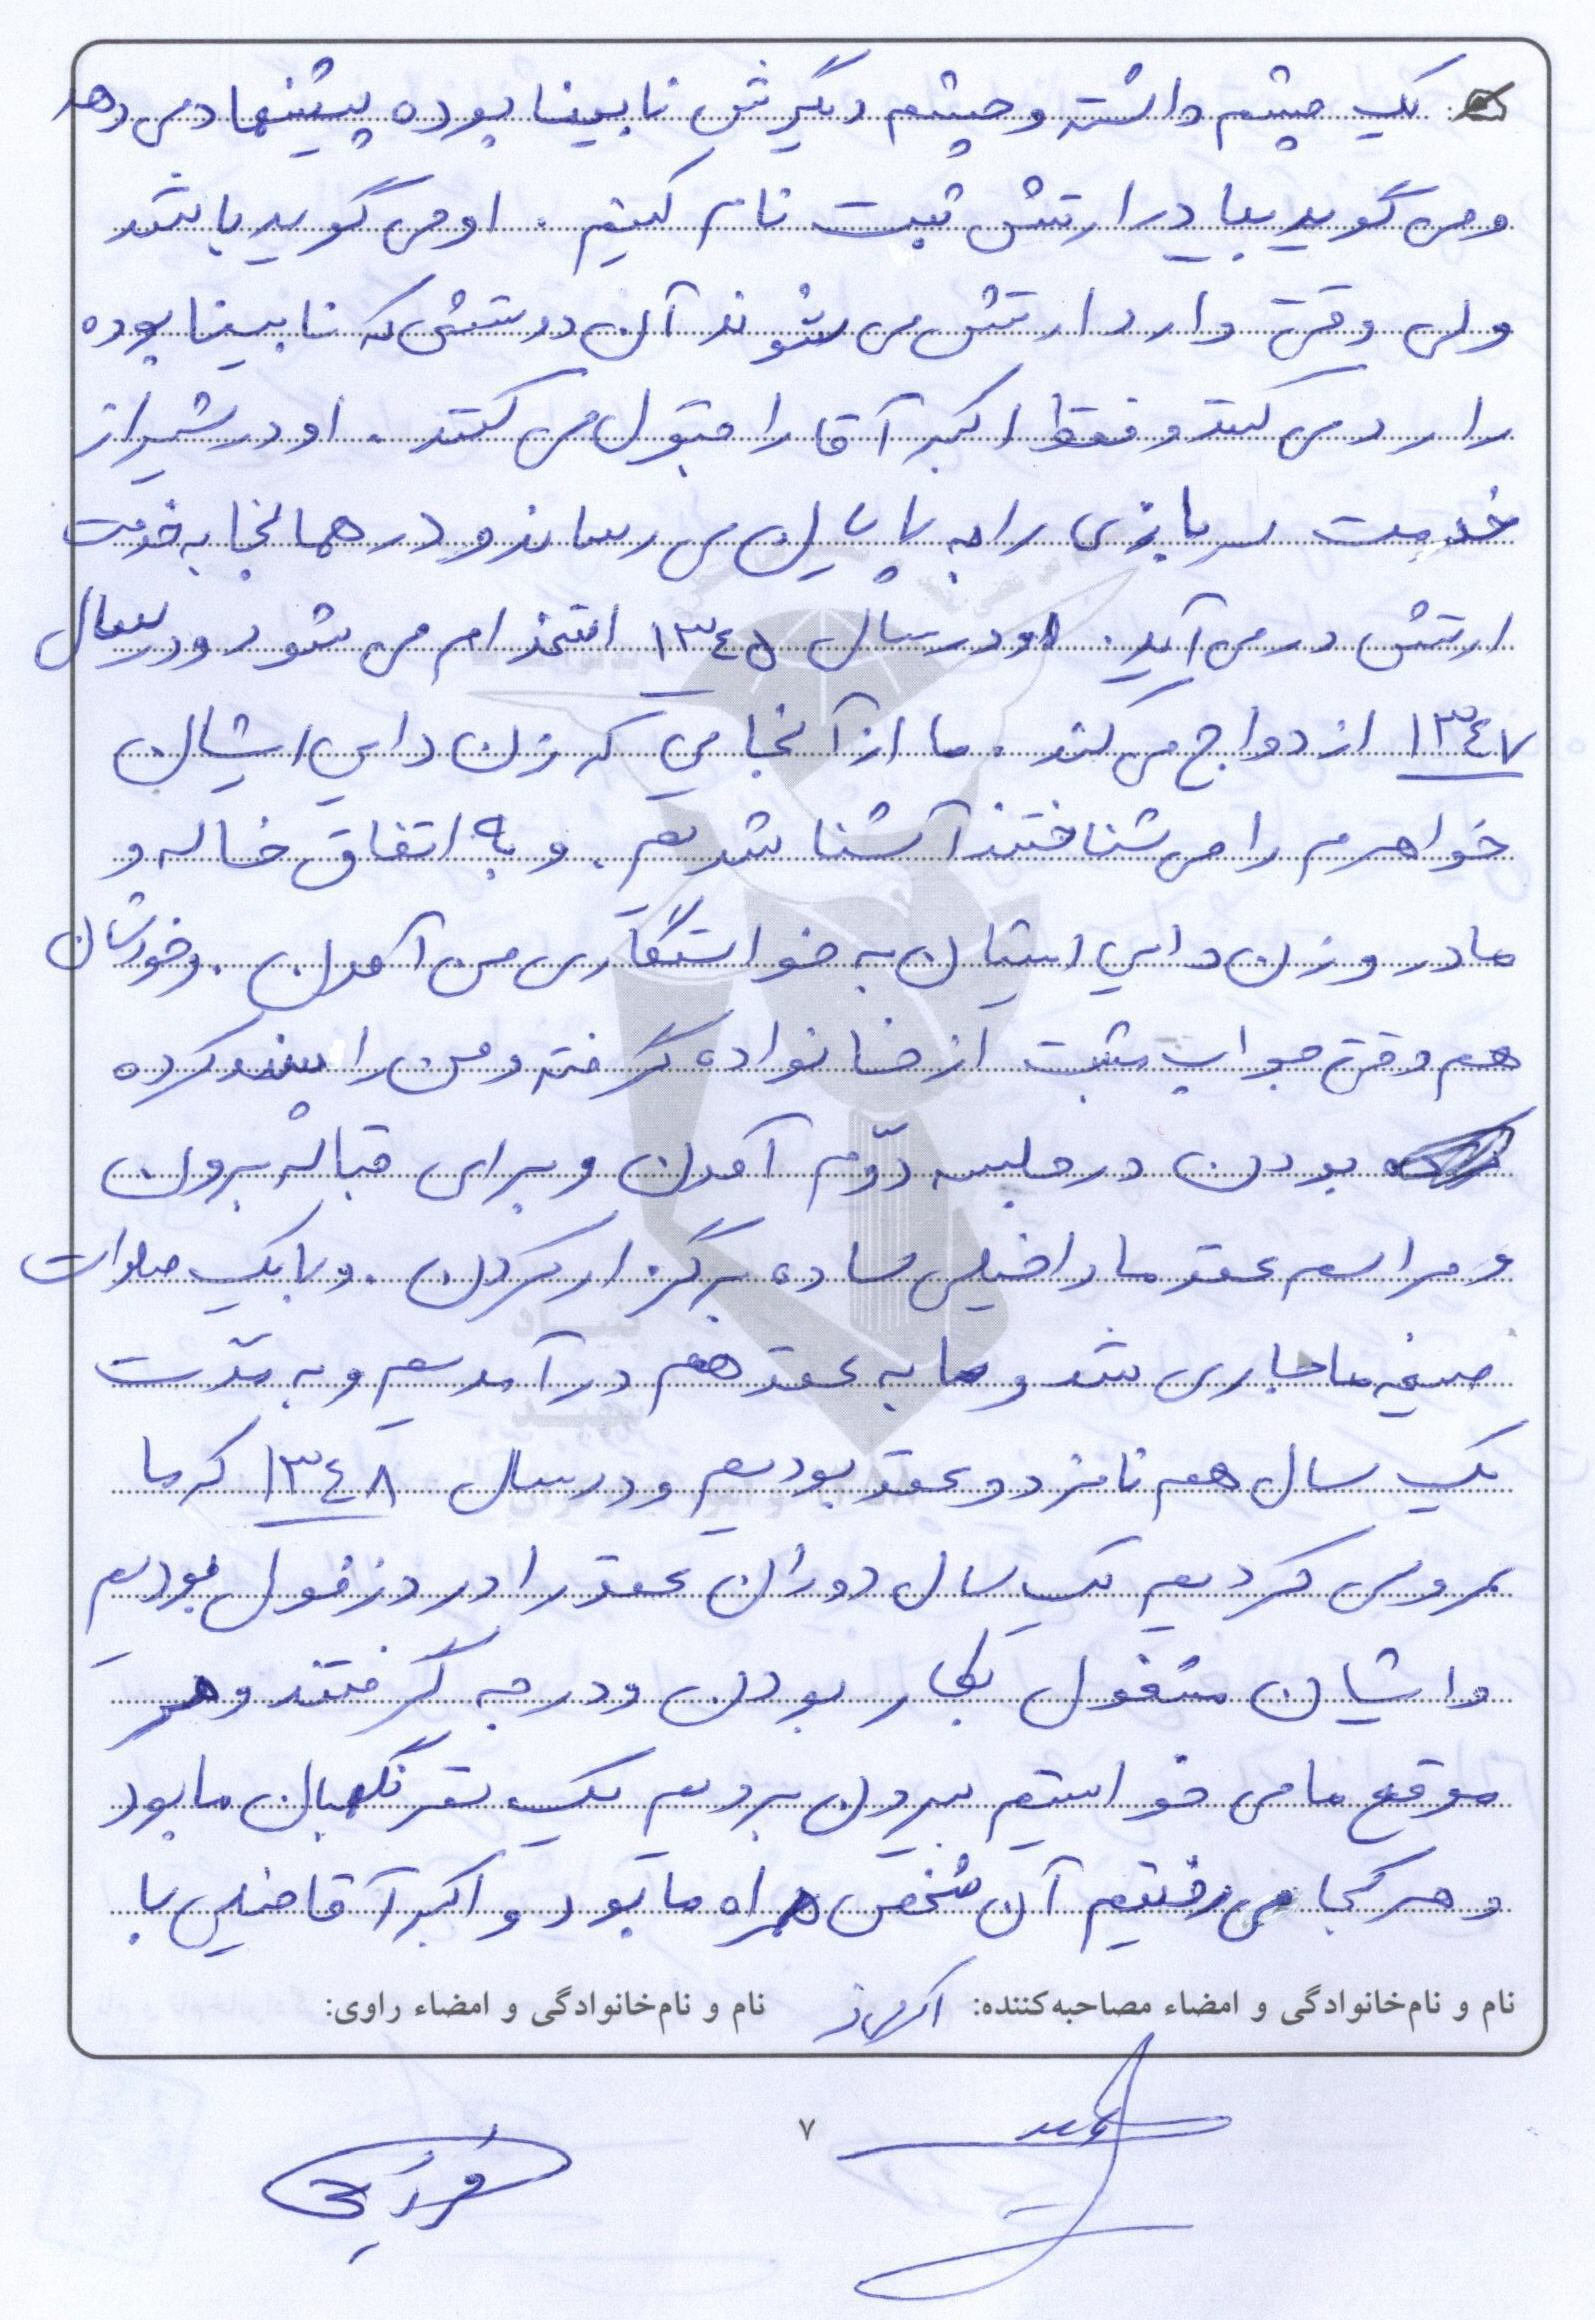 یک چشم داشته و چشم دیگرش نابینا بوده پیشنهاد می دهد
و می گوید بیا در ارتش ثبت نام کنیم . او می گوید باشد
ولی وقتی وارد ارتش می شوند آن دوستش که نابینا بوده
را رد می کنند و فقط اکبر آقا را قبول می کنند . او در شیراز
خدمت سربازی را به پایان می رساند و در همانجا به خدمت
ارتش در می آید . او در سال ۱۳۴۵ استخدام می شود و در سال
۱۳۴۷ ازدواج می کند . ما از آنجایی که زن دایی ایشان
خواهرم را می شناختند آشنا شدیم . و به اتفاق خاله و
مادر و زن دایی ایشان به خواستگاری من آمدن . و خودشان
هم وقتی جواب مثبت از خانواده گرفته و من را پسند کرده
بودن در جلسه دوّم آمدن و برای قباله برون
و مراسم عقد ما را خیلی ساده برگزار کردن . و با یک صلوات
صیغه ما جاری شد و ما به عقد هم در آمدیم و به مدّت
یک سال هم نامزد و عقد بودیم و در سال ۱۳۴۸ که ما
عروسی کردیم یک سال دوران عقد را در دزفول بودیم
و ایشان مشغول بکار بودن و درجه گرفتند و هر
موقع ما می خواستیم بیرون برویم یک نفر نگهبان ما بود
و هر کجا می رفتیم آن شخص همراه ما بود و اکبر آقا خیلی با
نام و نام‌خانوادگی و امضاء مصاحبه‌کننده: نام و نام‌خانوادگی و امضاء راوی:
۷